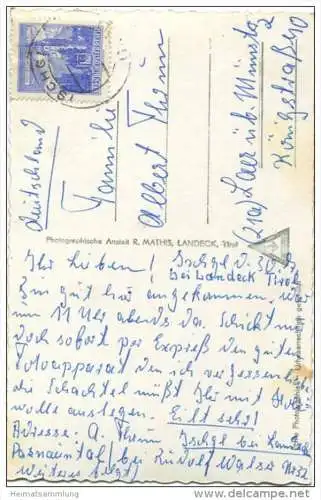 ISCHGL
Deutschland
Familie
Albert Thünn
(21a) Laer üb. Münster 2
Königstraße 40
Photographische Anstalt R. MATHIS, LANDECK, Tirol
Ihr Lieben! Ischgl
bei Landeck Tirol
Bin gut hier angekommen. war
um 11 Uhr abends da. Schickt mir
doch sofort per Expreß den guten
Fotoapparat den ich vergessen
die Schachtel müßt Ihr mit
wolle auslegen. Eilt sehr!
Adresse. A. Thünn Ischgl bei Landeck
Paznauntal bei Rudolf Walser Nr 32
Weiteres folgt!
Heimatsammlung
www.delcampe.net